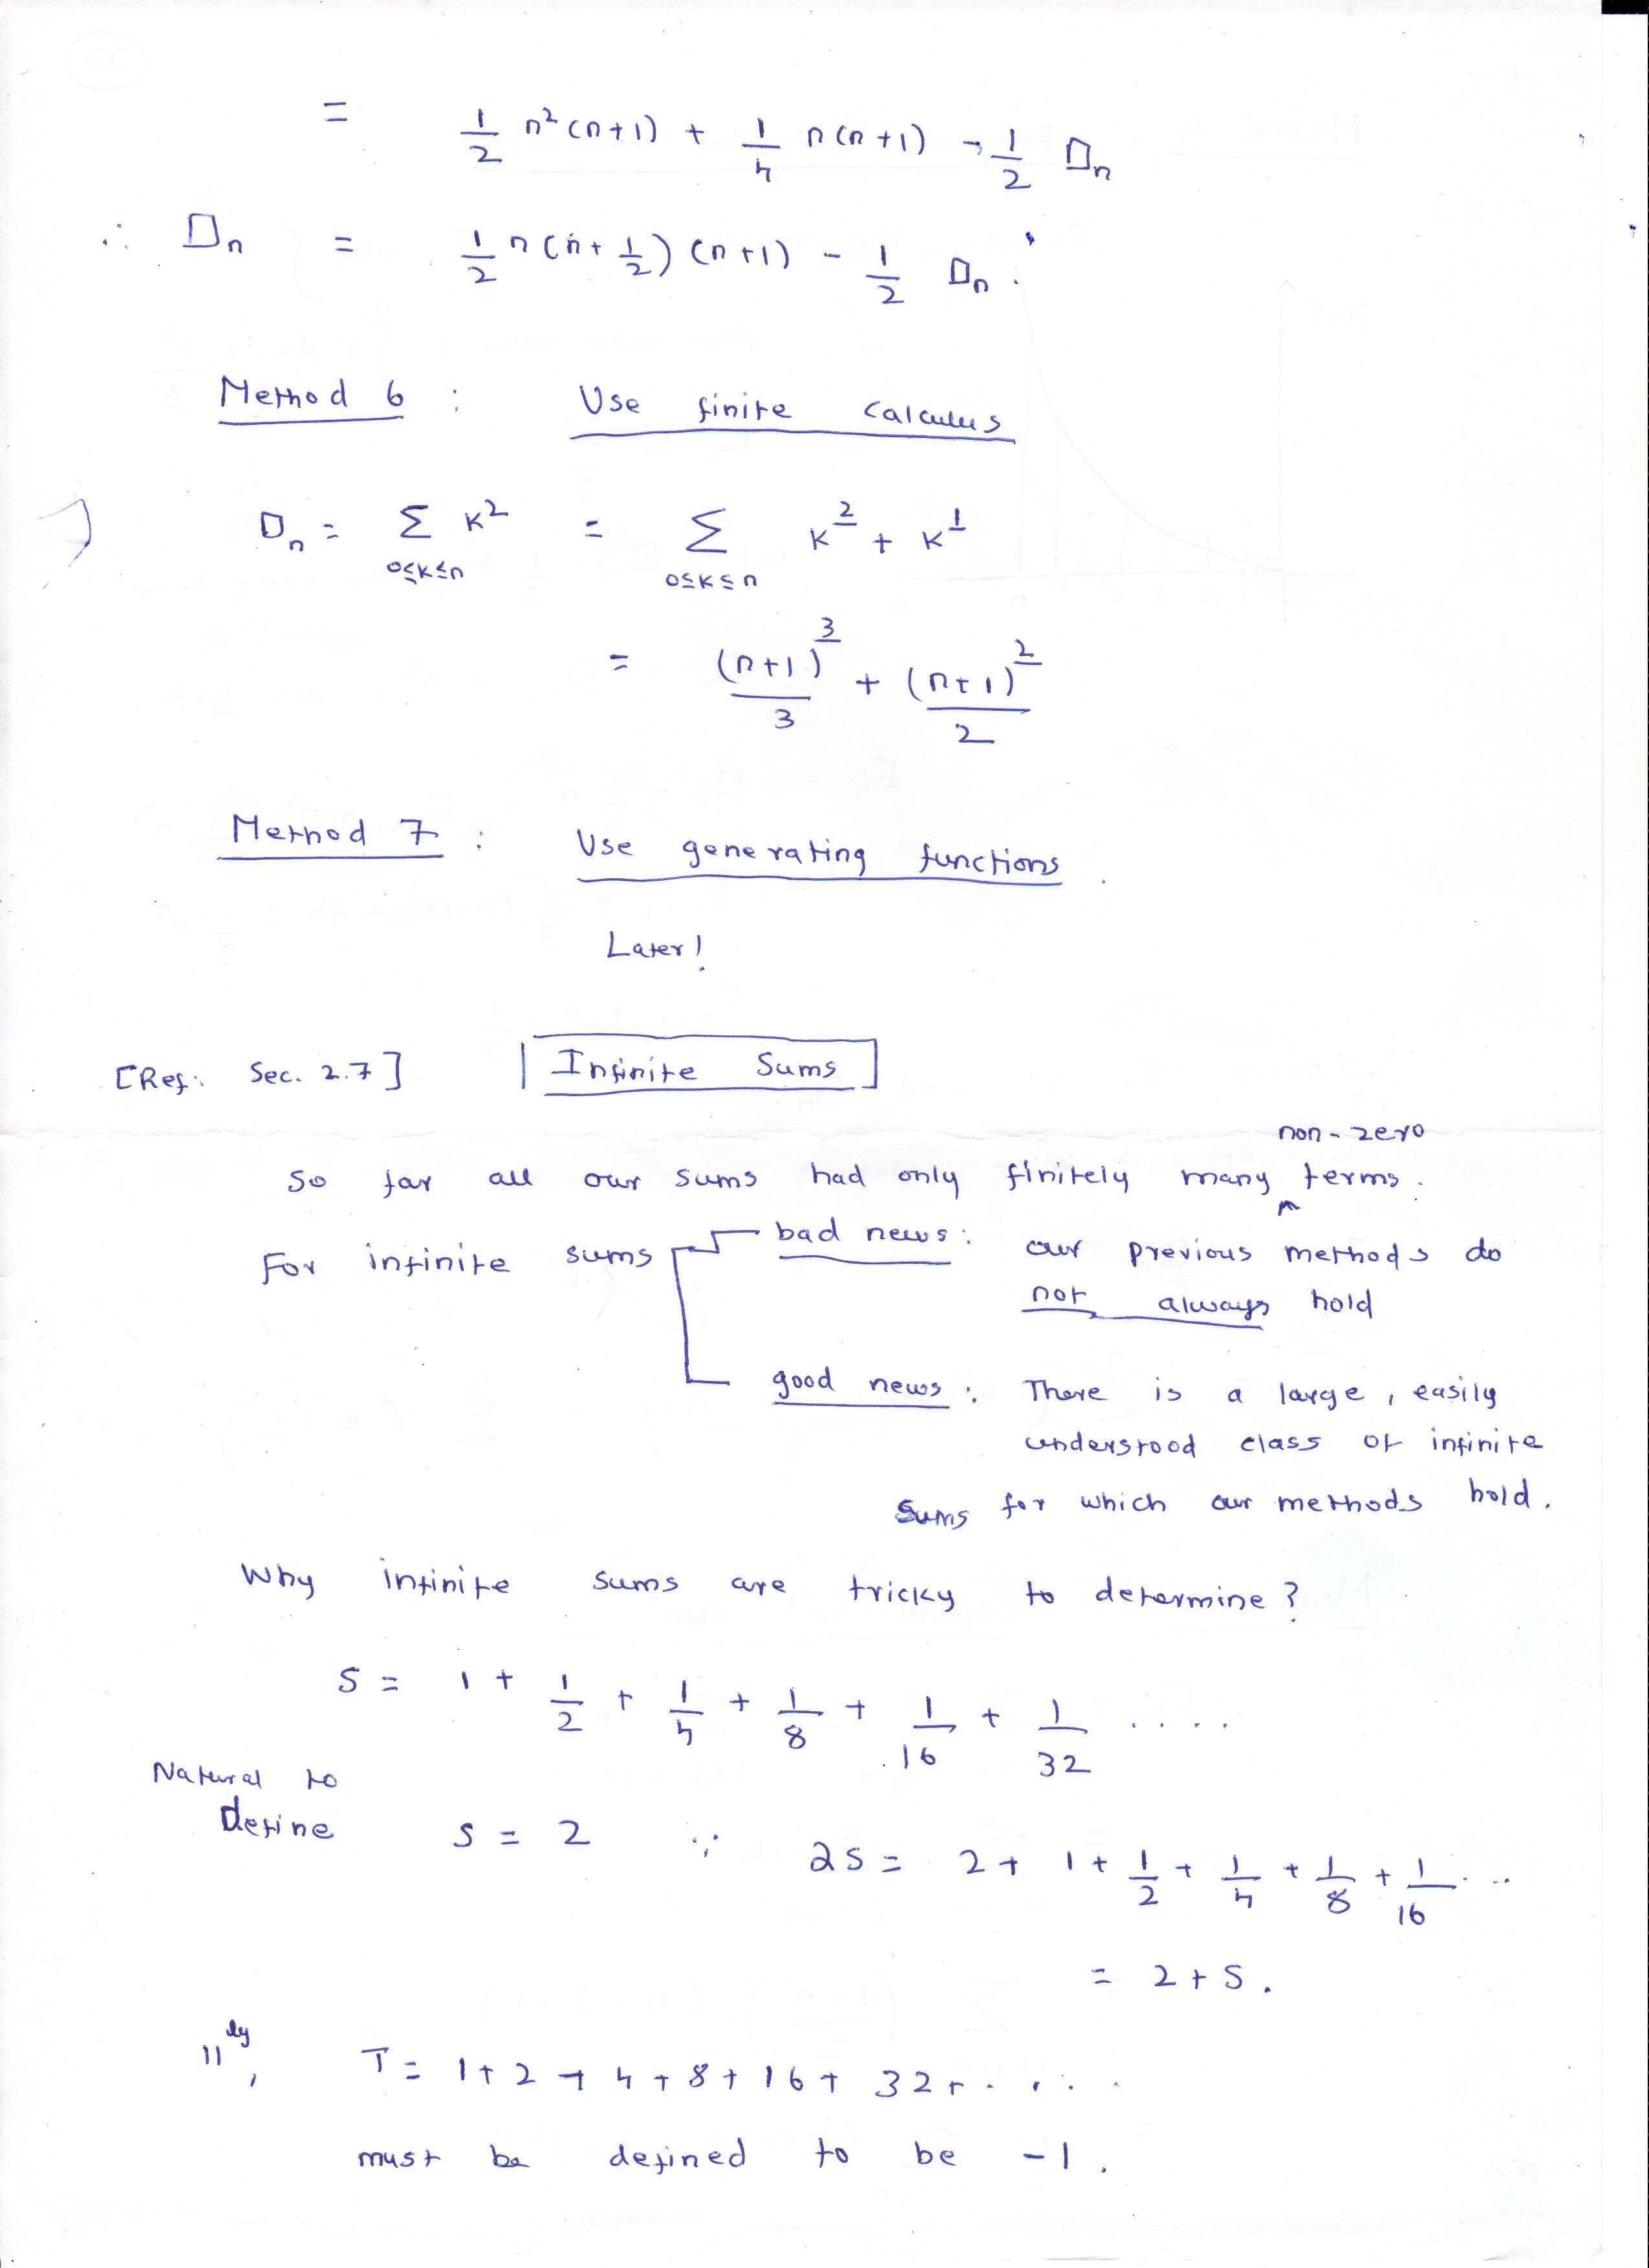 = 1/2 n²(n+1) + 1/4 n(n+1) - 1/2 □n
∴ □n = 1/2 n(n+1/2)(n+1) - 1/2 □n.
Method 6 : Use finite calculus
□n = Σ_{0≤k≤n} k² = Σ_{0≤k≤n} k^{\underline{2}} + k^{\underline{1}}
= (n+1)^{\underline{3}}/3 + (n+1)^{\underline{2}}/2
Method 7 : Use generating functions.
Later!
[Ref: Sec. 2.7] Infinite Sums
So far all our sums had only finitely many non-zero terms.
For infinite sums bad news: our previous methods do
not always hold
good news: There is a large, easily
understood class of infinite
sums for which our methods hold.
Why infinite sums are tricky to determine?
S = 1 + 1/2 + 1/4 + 1/8 + 1/16 + 1/32 ....
Natural to
Define S = 2 ∵ 2S = 2 + 1 + 1/2 + 1/4 + 1/8 + 1/16 ...
= 2 + S.
||ly, T = 1 + 2 + 4 + 8 + 16 + 32 + ....
must be defined to be -1.